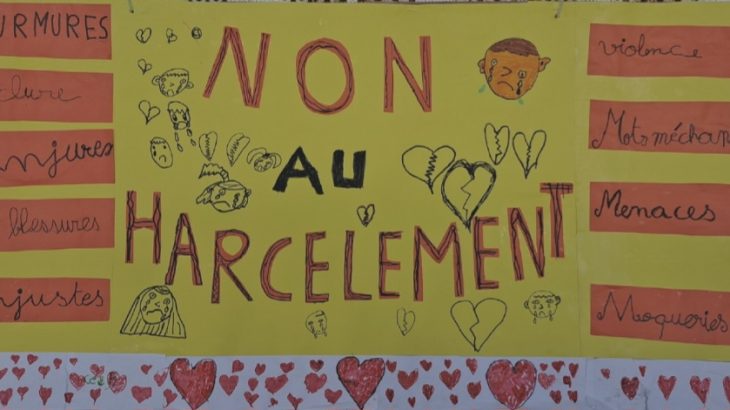 URMURES
clure
njures
blessures
njustes
NON
AU
HARCELEMENT
violence
Mots méchan
Menaces
Moqueries